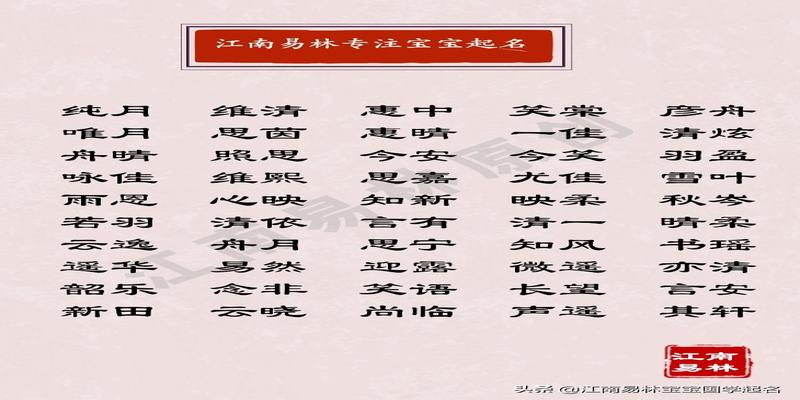 江南易林专注宝宝起名
纯月 维清 惠中 笑棠 彦舟
唯月 思茵 惠晴 一佳 清炫
舟晴 照思 今安 今笑 羽盈
咏佳 维熙 思嘉 尤佳 雪叶
雨恩 心映 知新 映柔 秋岑
若羽 清依 言有 清一 晴柔
云逸 舟月 思宁 知风 书瑶
遥华 易然 迎露 微遥 亦清
韶乐 念非 笑语 长望 言安
新田 云晓 尚临 声遥 其轩
江南易林原创
江南
易林
头条 @江南易林宝宝国学起名